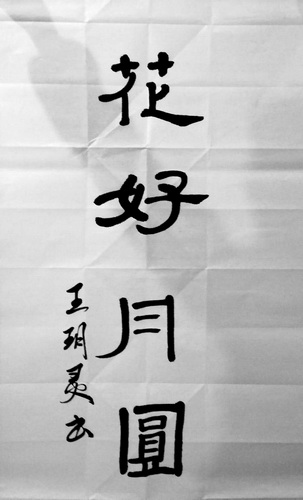 花好月圓
王玥灵书